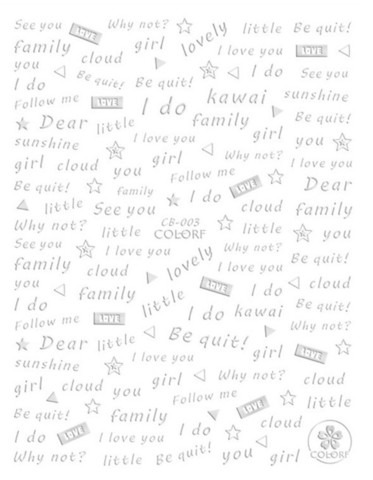 See you LOVE Why not? lovely little Be quit!
family girl I love you LOVE
you cloud
I do Be quit! Be quit! I do See you
Follow me LOVE I do kawai sunshine
Dear little family Be quit!
sunshine I love you girl you
girl cloud you girl Why not? cloud
Be quit! family Follow me I do LOVE Dear
little See you cloud family
Why not? little CB-003 little you
COLORF
See you I love you lovely Why not? Be quit!
family cloud I love you
you family LOVE I do cloud
I do little I do kawai Be quit!
Follow me LOVE Why not?
Dear little Be quit!
sunshine I love you girl LOVE
girl cloud you girl Why not? cloud
Be quit! family Follow me LOVE little
I do LOVE I love you I do cloud
Why not? little Be quit! you girl COLORF